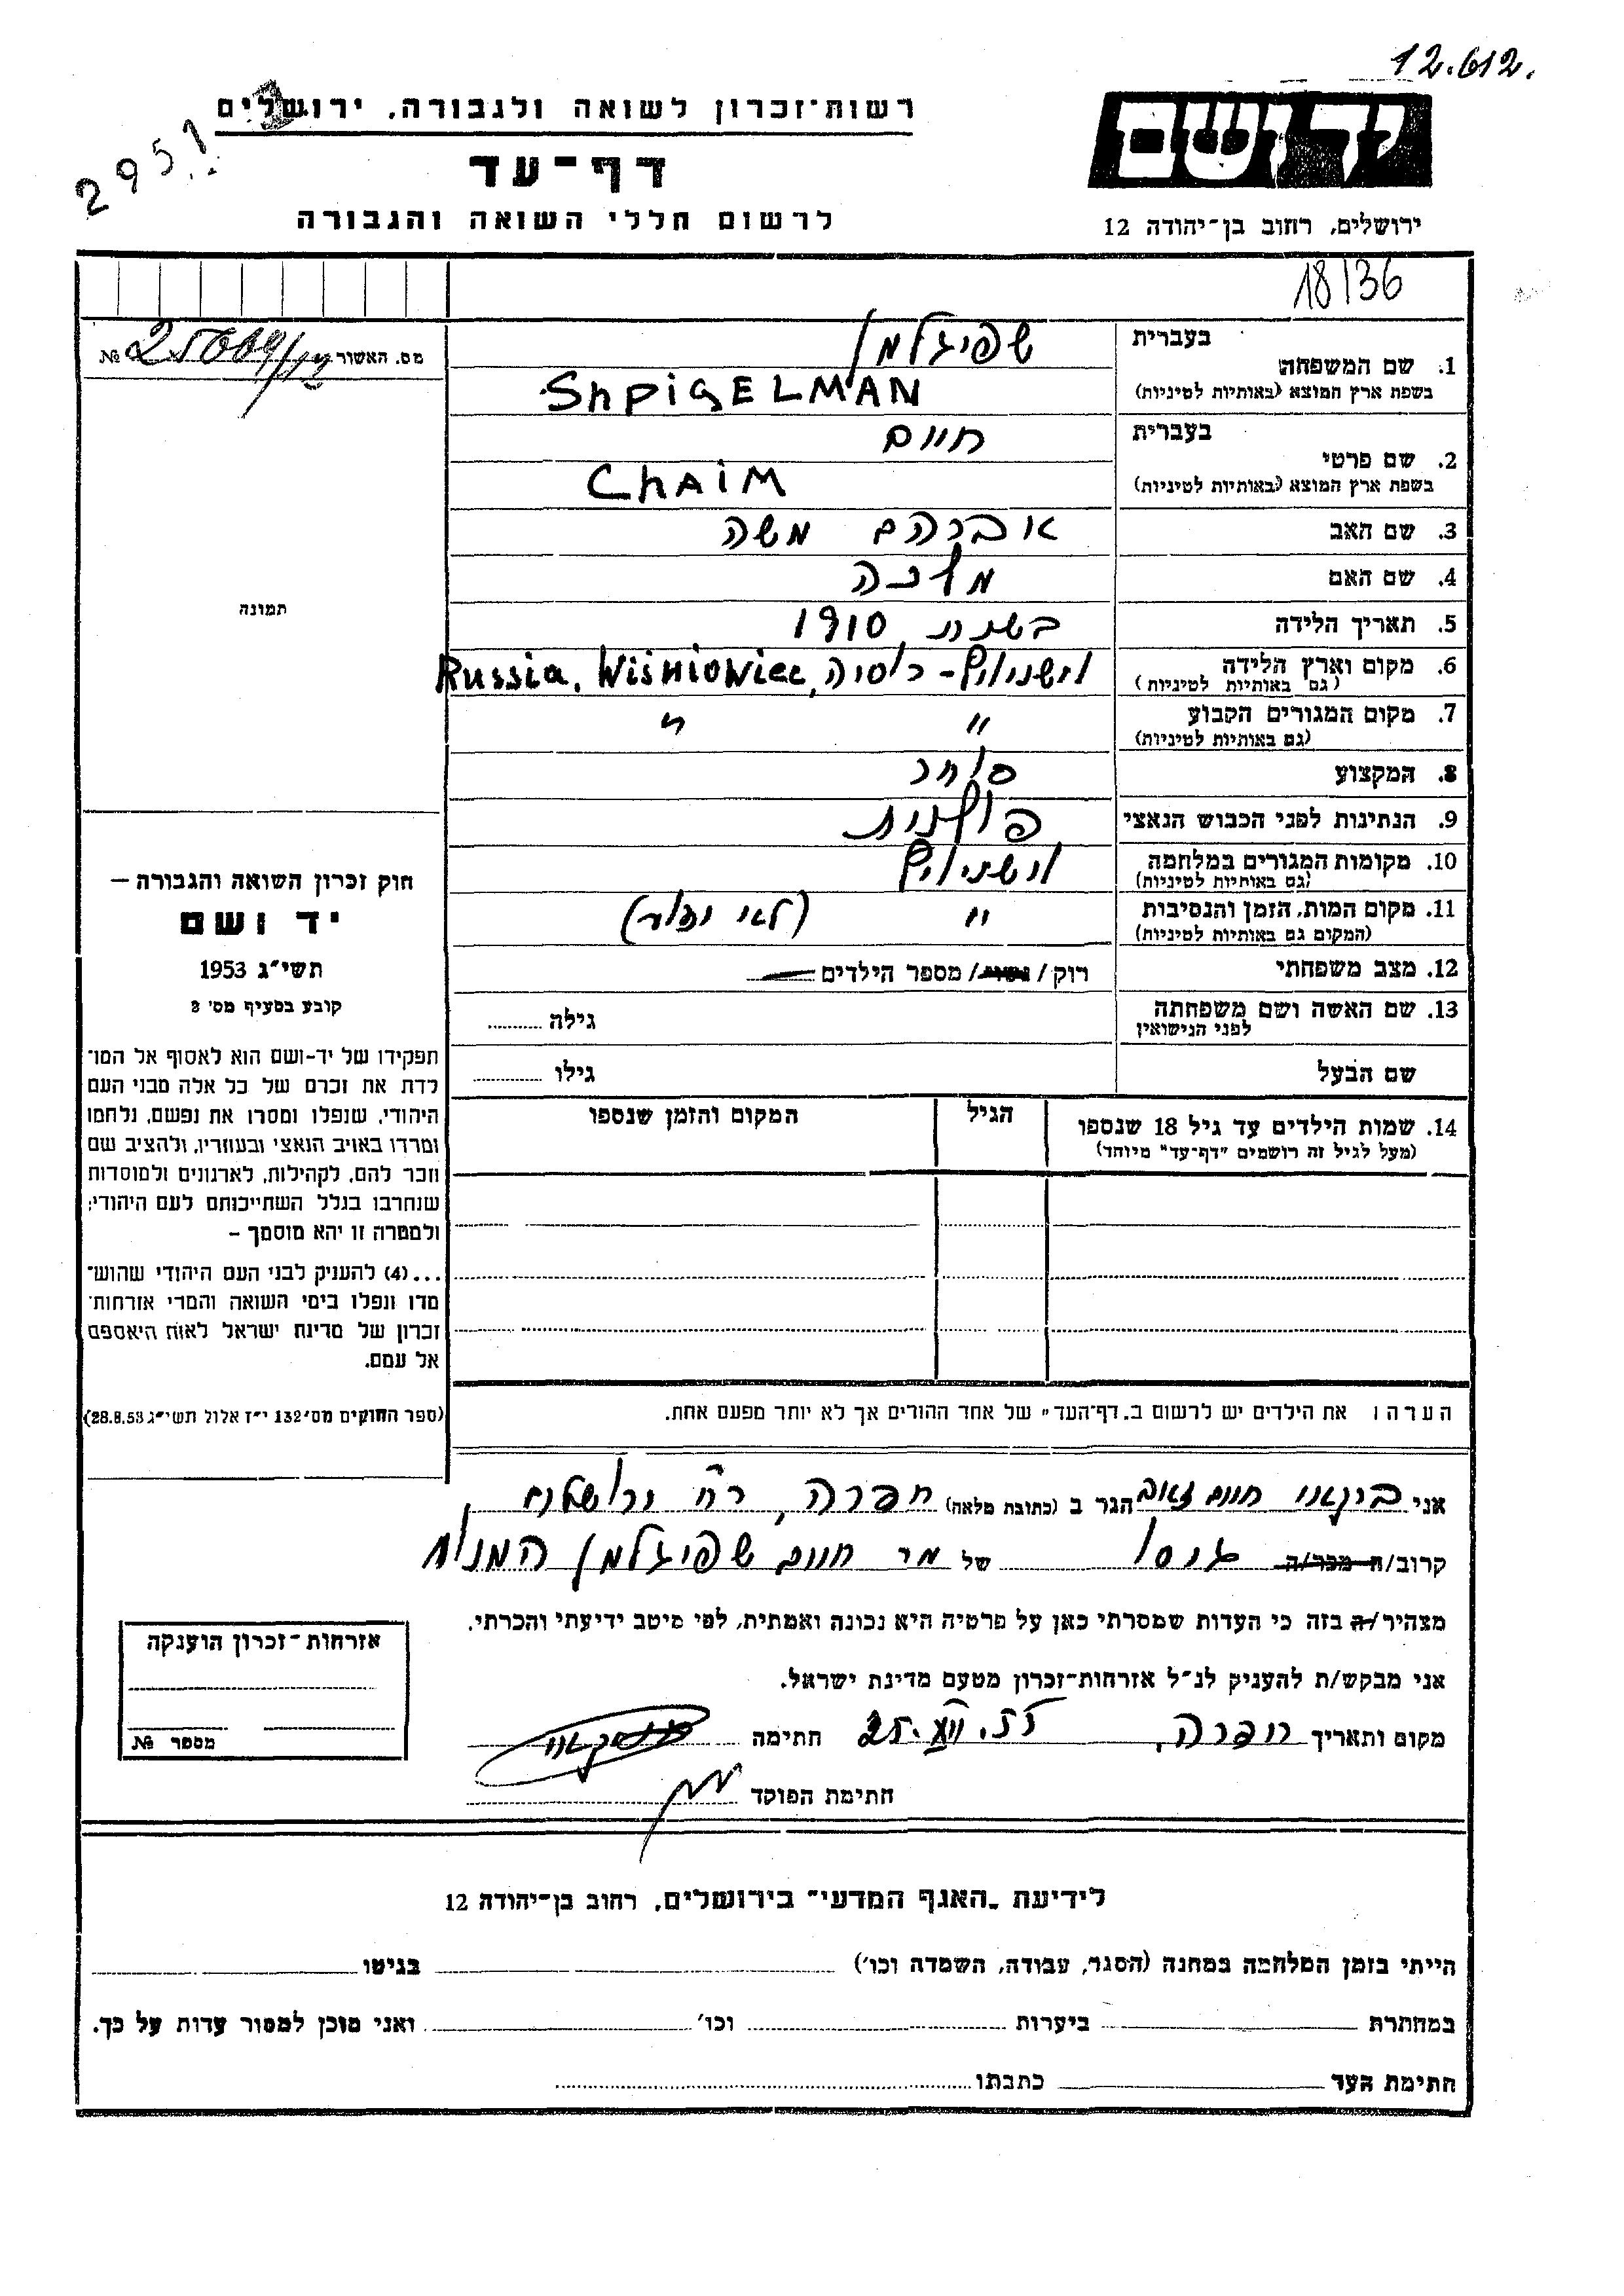 12.612.
רשות-זכרון לשואה ולגבורה, ירושלים
2951
דף-עד
לרשום חללי השואה והגבורה
ידושם
ירושלים, רחוב בן-יהודה 12
18136
מס. האשור №
1. שם המשפחה
בעברית שפיגלמן
בשפת ארץ המוצא (באותיות לטיניות) ShPiGELMAN
2. שם פרטי
בעברית חיים
בשפת ארץ המוצא (באותיות לטיניות) ChAiM
3. שם האב אברהם משה
4. שם האם מלכה
5. תאריך הלידה בשנת 1910
6. מקום וארץ הלידה וישניוויץ - רוסיה, Russia, Wiśniowiec
(גם באותיות לטיניות)
7. מקום המגורים הקבוע " "
(גם באותיות לטיניות)
8. המקצוע סוחר
9. הנתינות לפני הכבוש הנאצי פולנית
10. מקומות המגורים במלחמה וישניוויץ
(גם באותיות לטיניות)
11. מקום המות, הזמן והנסיבות " (לאי ידוע)
(המקום גם באותיות לטיניות)
12. מצב משפחתי רוק / נשוי / מספר הילדים
13. שם האשה ושם משפחתה גילה
לפני הנישואין
שם הבעל גילו
14. שמות הילדים עד גיל 18 שנספו הגיל המקום והזמן שנספו
(מעל לגיל זה רושמים "דף-עד" מיוחד)
הערה: את הילדים יש לרשום ב"דף-העד" של אחד ההורים אך לא יותר מפעם אחת.
תמונה
חוק זכרון השואה והגבורה —
יד ושם
תשי"ג 1953
קובע בסעיף מס' 2
תפקידו של יד-ושם הוא לאסוף אל המו-
לדת את זכרם של כל אלה מבני העם
היהודי, שנפלו ומסרו את נפשם, נלחמו
ומרדו באויב הנאצי ובעוזריו, ולהציב שם
וזכר להם, לקהילות, לארגונים ולמוסדות
שנחרבו בגלל השתייכותם לעם היהודי;
ולמטרה זו יהא מוסמך –
...(4) להעניק לבני העם היהודי שהוש-
מדו ונפלו בימי השואה והמרי אזרחות-
זכרון של מדינת ישראל לאות היאספם
אל עמם.
(ספר החוקים מס' 132 י"ז אלול תשי"ג 28.8.53)
אני חיים זאב הגר ב (כתובת מלאה) חדרה, רח' ירושלים
קרוב/ה מכר/ה גיסו של מר חיים שפיגלמן המנוח
מצהיר/ה בזה כי העדות שמסרתי כאן על פרטיה היא נכונה ואמתית, לפי מיטב ידיעתי והכרתי.
אני מבקש/ת להעניק לנ"ל אזרחות-זכרון מטעם מדינת ישראל.
מקום ותאריך חדרה, 25.VII.55 חתימה
חתימת הפוקד
אזרחות-זכרון הוענקה
מספר №
לידיעת "האגף המדעי" בירושלים, רחוב בן-יהודה 12
הייתי בזמן המלחמה במחנה (הסגר, עבודה, השמדה וכו') בגיטו
במחתרת ביערות וכו' ואני מוכן למסור עדות על כך.
חתימת העד כתבתו